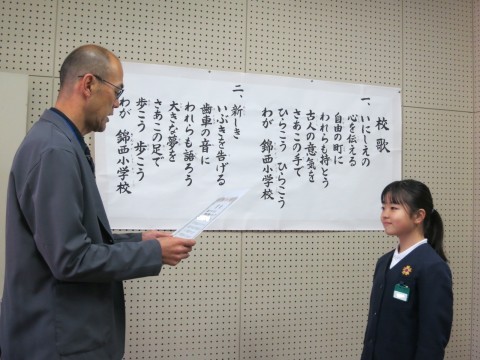 校歌
一、いにしえの
心を伝える
自由の町に
われらも持とう
古人の意気を
さあこの手で
ひらこう ひらこう
わが 錦西小学校
二、新しき
いぶきを告げる
歯車の音に
われらも語ろう
大きな夢を
さあこの足で
歩こう 歩こう
わが 錦西小学校